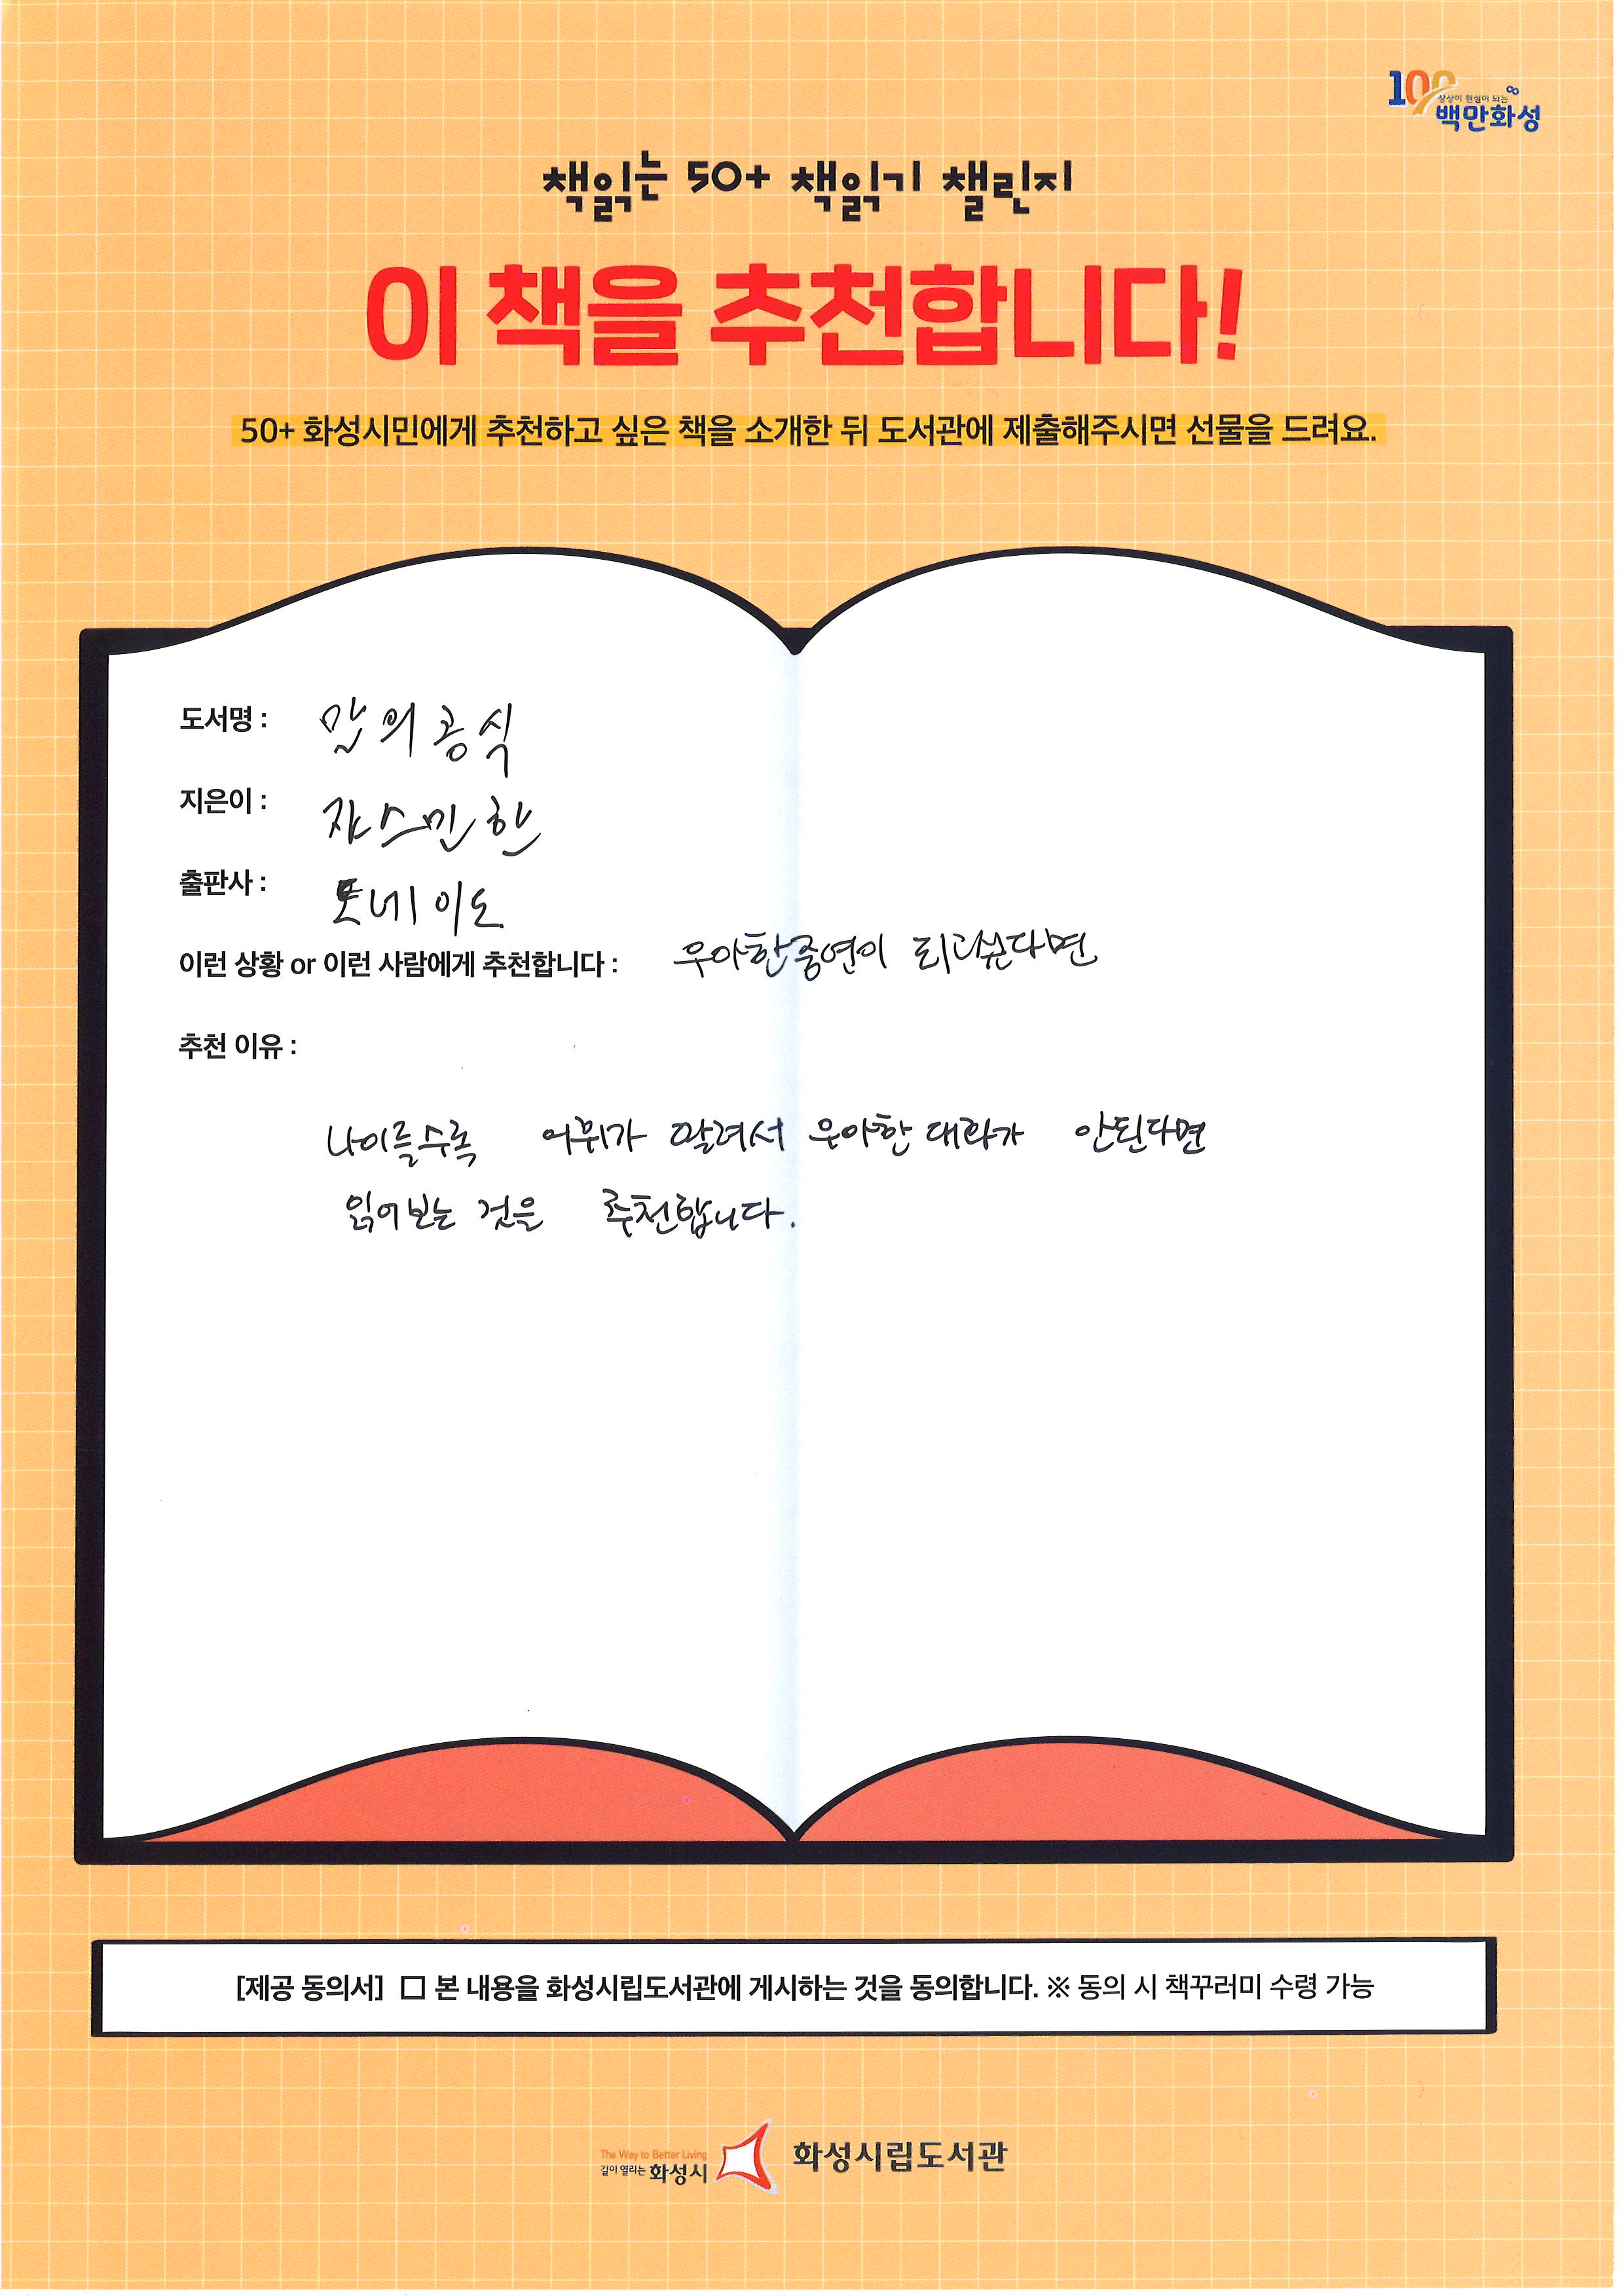 100
상상이 현실이 되는
백만화성
책읽는 50+ 책읽기 챌린지
이 책을 추천합니다!
50+ 화성시민에게 추천하고 싶은 책을 소개한 뒤 도서관에 제출해주시면 선물을 드려요.
도서명 : 말의 공식
지은이 : 쟈스민 한
출판사 : 토네이도
이런 상황 or 이런 사람에게 추천합니다 : 우아한 중연이 되고싶다면
추천 이유 :
나이들수록 어휘가 딸려서 우아한 대화가 안된다면
읽어보는 것을 추천합니다.
[제공 동의서] □ 본 내용을 화성시립도서관에 게시하는 것을 동의합니다. ※ 동의 시 책꾸러미 수령 가능
The Way to Better Living
길이 열리는 화성시
화성시립도서관